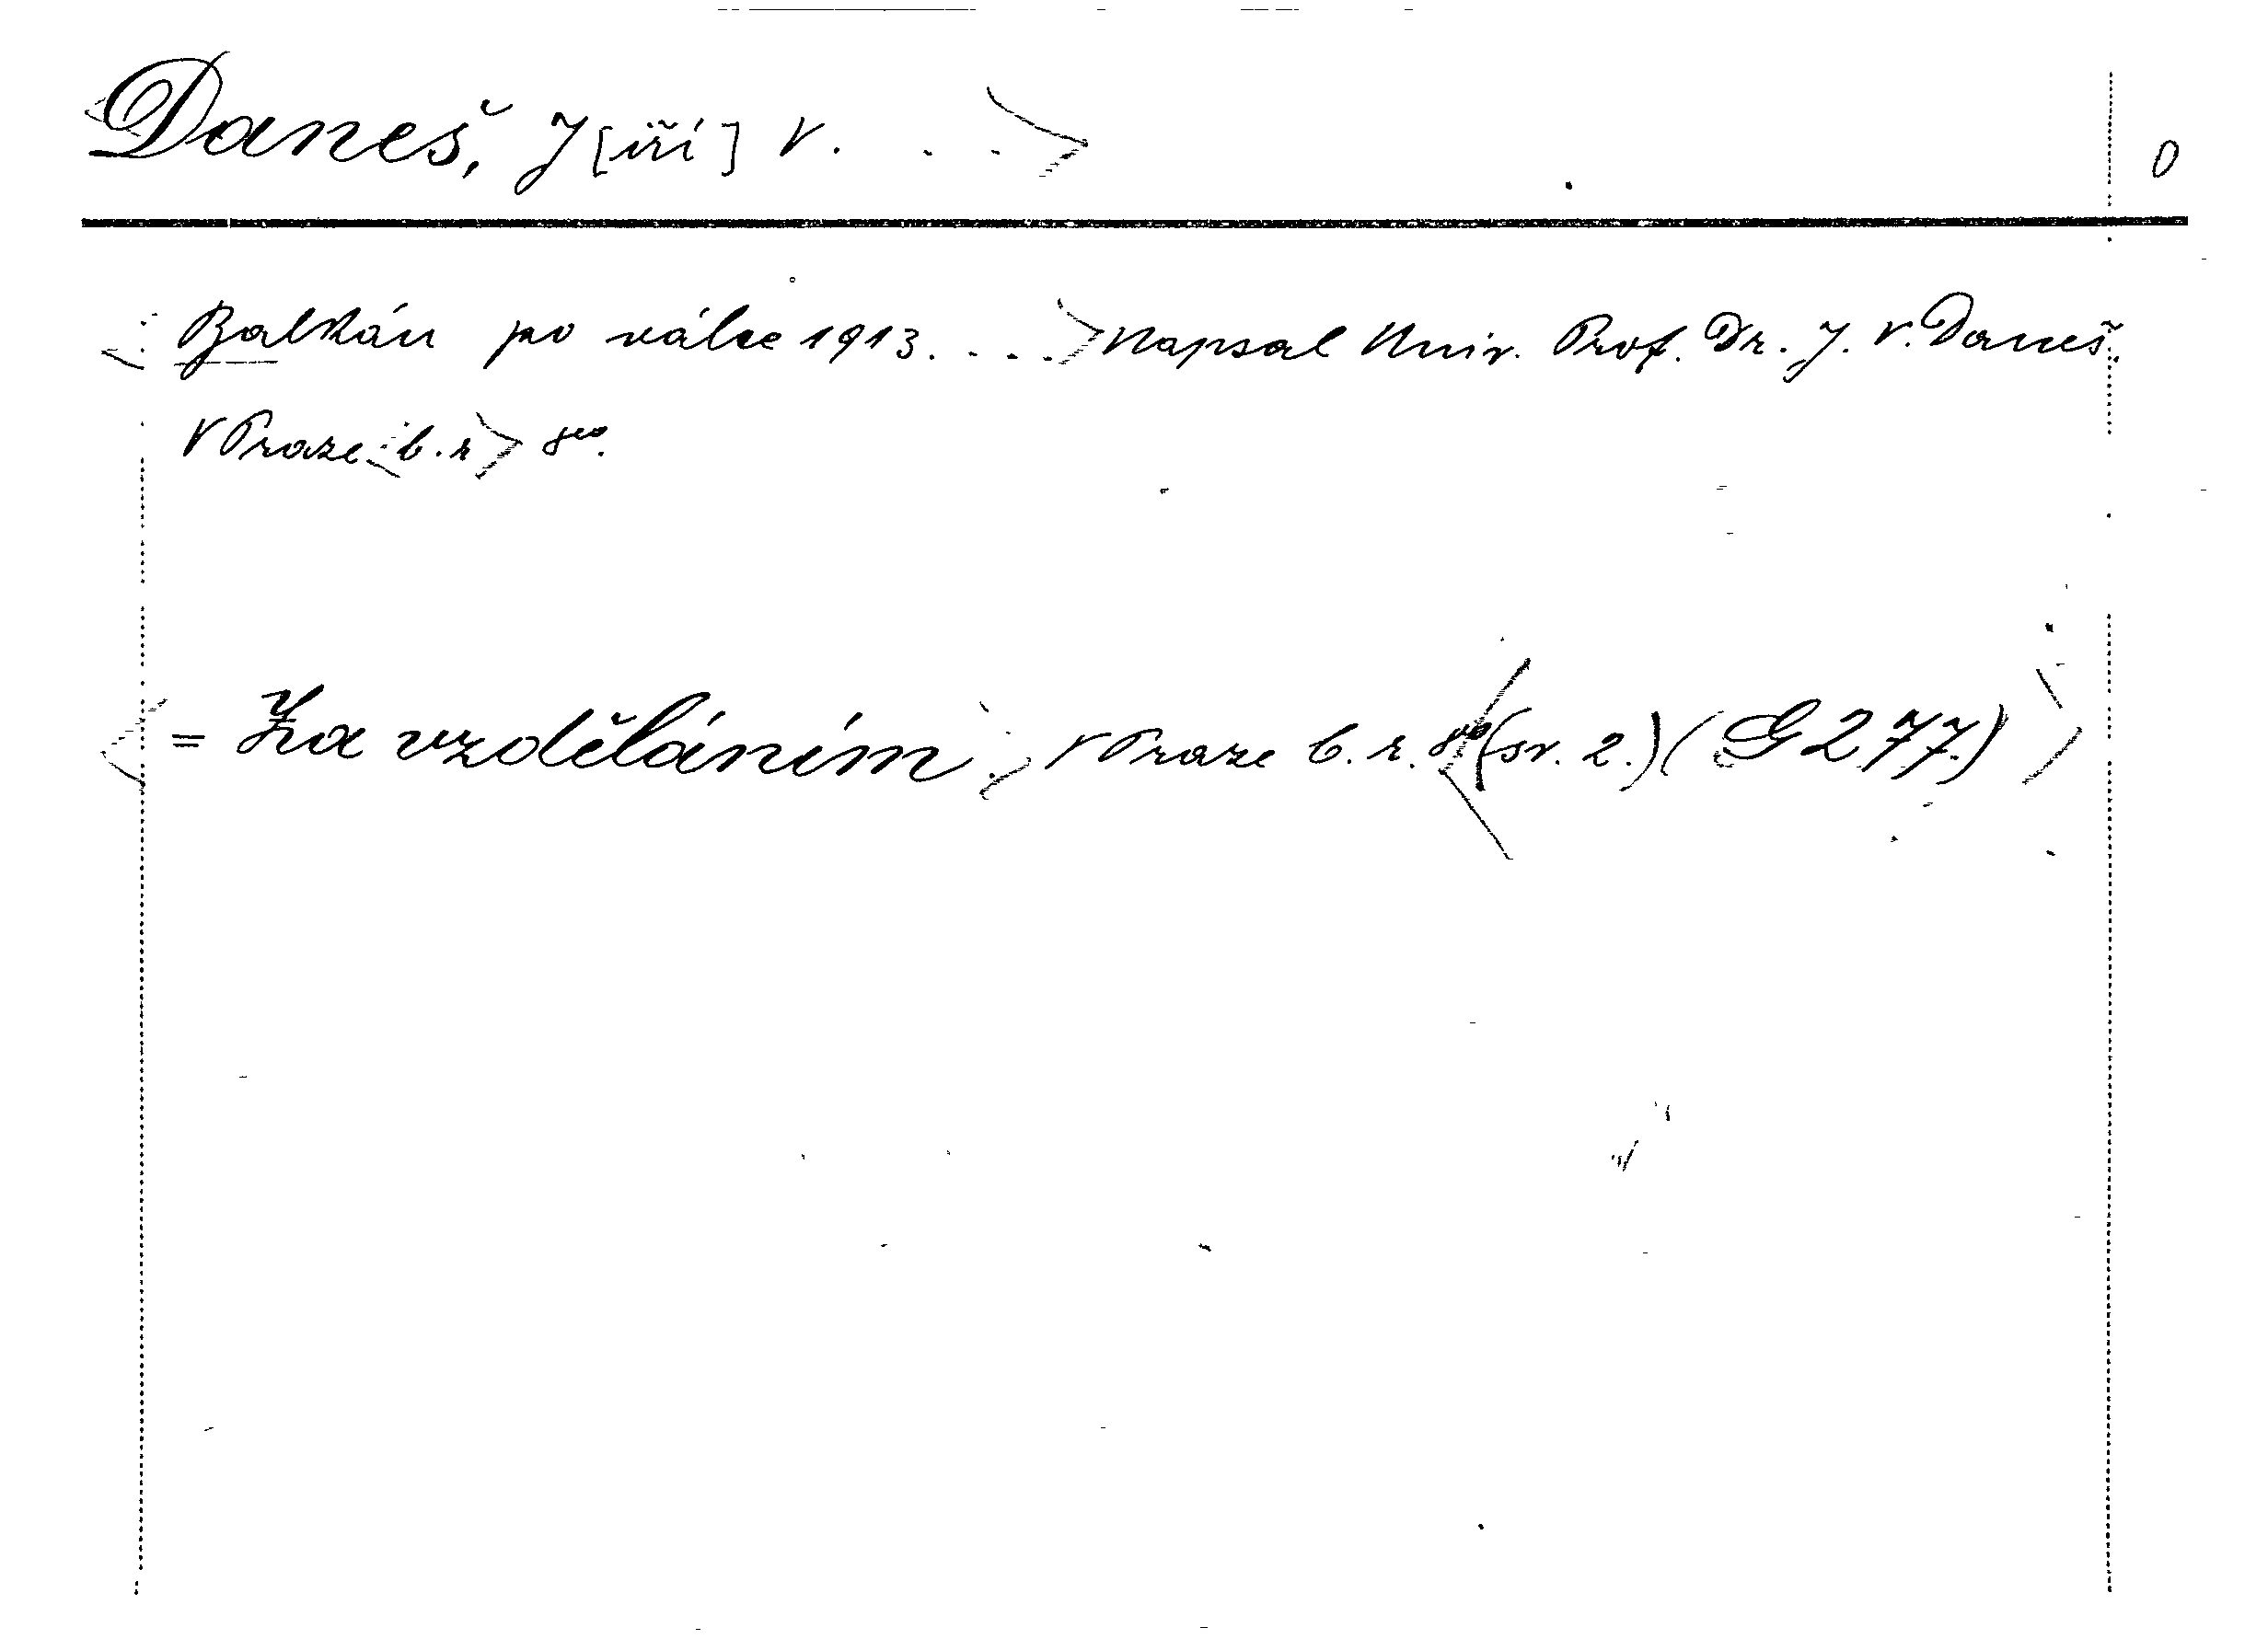 Daneš, J[iří] V. . . 0
Balkán po válce 1913. . . . Napsal Univ. Prof. Dr. J. V. Daneš.
V Praze b. r. 8vo.
= Za vzděláním. V Praze b. r. 8vo (sv. 2.) (G 277.)